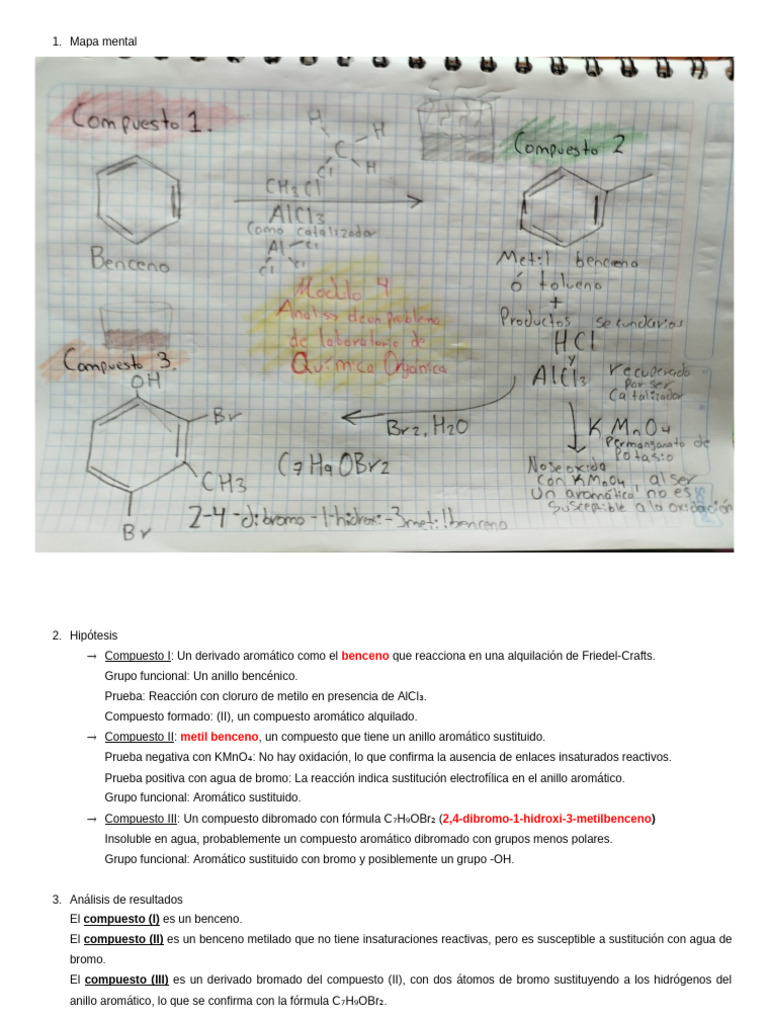 1. Mapa mental
Compuesto 1.
H
C
H
H
Cl
CH3Cl
AlCl3
Como catalizador
Al
Cl
Cl
Cl
Benceno
Compuesto 2
Metil benceno
ó tolueno
+
Productos secundarios
HCl
y
AlCl3
recuperado
por ser
Catalizador
Modulo 4
Análisis de un problema
de laboratorio de
Química Orgánica
KMnO4
Permanganato de
Potasio
No se oxida
con KMnO4, al ser
Un aromático, no es
Susceptible a la oxidación
Br2, H2O
Compuesto 3.
OH
Br
CH3
Br
C7H9OBr2
2-4-dibromo-1-hidroxi-3metilbenceno
2. Hipótesis
→ Compuesto I: Un derivado aromático como el benceno que reacciona en una alquilación de Friedel-Crafts.
Grupo funcional: Un anillo bencénico.
Prueba: Reacción con cloruro de metilo en presencia de AlCl₃.
Compuesto formado: (II), un compuesto aromático alquilado.
→ Compuesto II: metil benceno, un compuesto que tiene un anillo aromático sustituido.
Prueba negativa con KMnO₄: No hay oxidación, lo que confirma la ausencia de enlaces insaturados reactivos.
Prueba positiva con agua de bromo: La reacción indica sustitución electrofílica en el anillo aromático.
Grupo funcional: Aromático sustituido.
→ Compuesto III: Un compuesto dibromado con fórmula C₇H₉OBr₂ (2,4-dibromo-1-hidroxi-3-metilbenceno)
Insoluble en agua, probablemente un compuesto aromático dibromado con grupos menos polares.
Grupo funcional: Aromático sustituido con bromo y posiblemente un grupo -OH.
3. Análisis de resultados
El compuesto (I) es un benceno.
El compuesto (II) es un benceno metilado que no tiene insaturaciones reactivas, pero es susceptible a sustitución con agua de
bromo.
El compuesto (III) es un derivado bromado del compuesto (II), con dos átomos de bromo sustituyendo a los hidrógenos del
anillo aromático, lo que se confirma con la fórmula C₇H₉OBr₂.